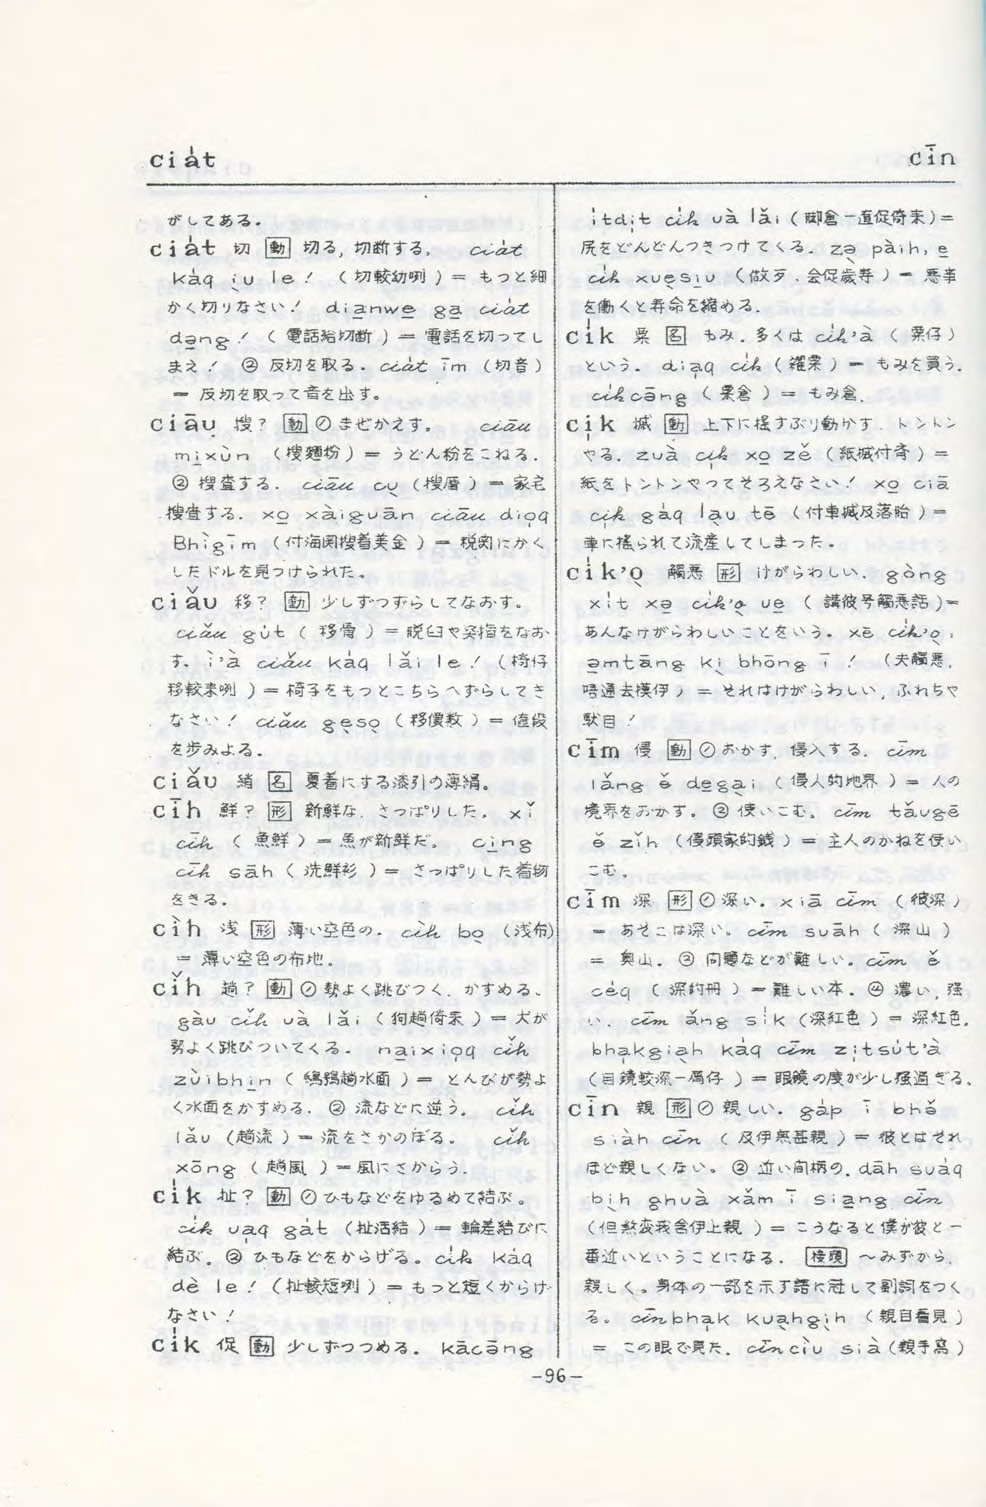 ciȧt
cīn
がしてある。
ciȧt 切 動 切る, 切断する。 ciȧt
kàq iu le！（切較幼咧）= もっと細
かく切りなさい！ dianwe ga ciȧt
dəng！（電話給切断）= 電話を切ってし
まえ！ ② 反切を取る. ciȧt īm（切音）
= 反切を取って音を出す。
ciāu 搜? 動 ① まぜかえす. ciāu
mixùn（搜麵粉）= うどん粉をこねる.
② 捜査する. ciāu cu（搜厝）= 家宅
捜査する. xo xàiguān ciāu dioq
Bhìgīm（付海関搜着美金）= 税関にかく
したドルを見つけられた.
ciǎu 移? 動 少しずつずらしてなおす.
ciǎu gut（移骨）= 脱臼や突指をなお
す. ì'à ciǎu kàq lǎi le！（椅仔
移較来咧）= 椅子をもっとこちらへずらしてき
なさい！ ciǎu geso（移價数）= 値段
を歩みよる.
ciǎu 綃 名 夏着にする漆引の薄絹.
cīh 鮮? 形 新鮮な. さっぱりした. xǐ
cīh（魚鮮）= 魚が新鮮だ. cing
cīh sāh（洗鮮衫）= さっぱりした着物
をきる.
cìh 浅 形 薄い空色の. cìh bo（浅布）
= 薄い空色の布地.
cǐh 趟? 動 ① 勢よく跳びつく. かすめる.
gàu cǐh uà lǎi（狗趟倚来）= 犬が
勢よく跳びついてくる. naixioq cǐh
zùibhin（鴟鴞趟水面）= とんびが勢よ
く水面をかすめる. ② 流などに逆う. cǐh
lǎu（趟流）= 流をさかのぼる. cǐh
xōng（趟風）= 風にさからう.
ci̍k 扯? 動 ① ひもなどをゆるめて結ぶ.
ci̍k uaq gȧt（扯活結）= 輪差結びに
結ぶ. ② ひもなどをからげる. ci̍k kàq
dè le！（扯較短咧）= もっと短くからげ
なさい！
ci̍k 促 動 少しずつつめる. kācāng
i̍tdi̩t ci̍k uà lǎi（脚倉一直促倚来）=
尻をどんどんつきつけてくる. zə pàih, e
ci̍k xuesiu（做歹, 会促歳寿）= 悪事
を働くと寿命を縮める.
ci̍k 粟 名 もみ. 多くは ci̍k'à（粟仔）
という. diaq ci̍k（糴粟）= もみを買う.
ci̍kcāng（粟倉）= もみ倉.
ci̩k 摵 動 上下に揺すぶり動かす. トントン
やる. zuà ci̩k xo zě（紙摵付齊）=
紙をトントンやってそろえなさい！ xo ciā
ci̩k gàq lau tē（付車摵及落胎）=
車に揺られて流産してしまった.
ci̍k'o 觸悪 形 けがらわしい. gòng
xi̍t xə ci̍k'o ue（講彼号觸悪話）=
あんなけがらわしいことをいう. xē ci̍k'o,
əmtāng ki bhōng ī！（夫觸悪,
唔通去摸伊）= それはけがらわしい, ふれちゃ
駄目！
cīm 侵 動 ① おかす. 侵入する. cīm
lǎng ě degai（侵人的地界）= 人の
境界をおかす. ② 使いこむ. cīm tǎugē
ě zǐh（侵頭家的錢）= 主人のかねを使い
こむ.
cīm 深 形 ① 深い. xiā cīm（彼深）
= あそこは深い. cīm suāh（深山）
= 奥山. ② 問題などが難しい. cīm ě
cėq（深的冊）= 難しい本. ④ 濃い, 强
い. cīm ǎng si̍k（深紅色）= 深紅色.
bhakgiah kàq cīm zi̩tsu̍t'à
（目鏡較深一屑仔）= 眼鏡の度が少し强過ぎる.
cīn 親 形 ① 親しい. gȧp ī bhǒ
siàh cīn（及伊無甚親）= 彼とはそれ
ほど親しくない. ② 近い間柄の. dāh suȧq
bìh ghuà xǎm ī siang cīn
（但煞変我含伊上親）= こうなると僕が彼と一
番近いということになる. 接頭 ～みずから.
親しく. 身体の一部を示す語に冠して副詞をつく
る. cīnbhak kuahgih（親目看見）
= この眼で見た. cīnciu sià（親手寫）
-96-